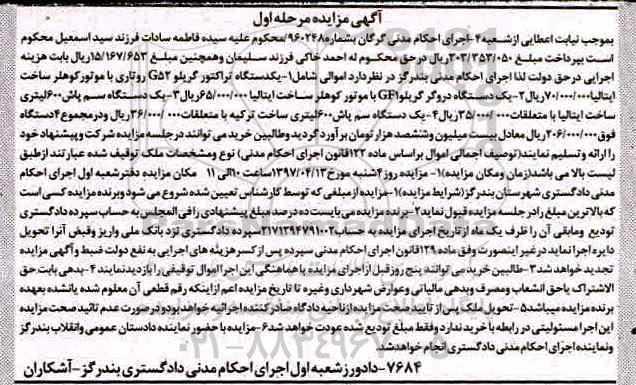 آگهی مزایده مرحله اول
بموجب نیابت اعطایی ازشعبه ۴-اجرای احکام مدنی گرگان بشماره۹۶۰۲۴۸/محکوم علیه سیده فاطمه سادات فرزند سید اسمعیل محکوم
است بپرداخت مبلغ ۳۰۳/۳۵۳/۰۵۰ریال درحق محکوم له احمد خاکی فرزند سلیمان وهمچنین مبلغ ۱۵/۱۶۷/۶۵۳ریال بابت هزینه
اجرایی درحق دولت لذا اجرای احکام مدنی بندرگز درنظردارد اموالی شامل۱-یکدستگاه تراکتور گریلو G52 روتاری با موتورکوهلر ساخت
ایتالیا۷۰/۰۰۰/۰۰۰ریال۲-یک دستگاه دروگر گریلوGF1 با موتور کوهلر ساخت ایتالیا ۶۵/۰۰۰/۰۰۰ریال۳-یک دستگاه سم پاش۶۰۰لیتری
ساخت ایتالیا با متعلقات ۳۵/۰۰۰/۰۰۰ریال۴-یک دستگاه سم پاش۶۰۰لیتری ساخت ترکیه با متعلقات۳۶/۰۰۰/۰۰۰ریال ودرمجموع۴دستگاه
فوق۲۰۶/۰۰۰/۰۰۰ریال معادل بیست میلیون وششصد هزارتومان برآورد گردید وطالبین خرید می توانند درجلسه مزایده شرکت وپیشنهاد خود
را ارائه وتسلیم نمایند(توصیف اجمالی اموال براساس ماده ۱۲۲قانون اجرای احکام مدنی) نوع ومشخصات ملک توقیف شده عبارتند ازطبق
لیست بالا می باشد(زمان ومکان مزایده)۱- مزایده روز ۴شنبه مورخ۱۳۹۷/۰۴/۱۳ساعت ۱۰الی ۱۱ مکان مزایده دفترشعبه اول اجرای احکام
مدنی دادگستری شهرستان بندرگز(شرایط مزایده)۱-مزایده ازمبلغی که توسط کارشناس تعیین شده شروع می شود وبرنده مزایده کسی است
که بالاترین مبلغ رادر جلسه مزایده قبول نماید۲-برنده مزایده می بایست ده درصد مبلغ پیشنهادی رافی المجلس به حساب سپرده دادگستری
تودیع ومابقی آن را ظرف یک ماه از تاریخ اجرای مزایده به حساب۲۱۷۱۲۹۴۷۹۱۰۰۲سپرده دادگستری نزد بانک ملی واریز وقبض آنرا تحویل
دایره اجرا نماید در غیر اینصورت وفق ماده ۱۲۹قانون اجرای احکام مدنی سپرده پس از کسر هزینه های اجرایی به نفع دولت ضبط و آگهی مزایده
تجدید خواهد شد۳-طالبین خرید می توانند پنج روز قبل از اجرای مزایده با هماهنگی این اجرا اموال توقیفی را بازدید نمایند ۴-بدهی بابت حق
الاشتراک یاحق انشعاب ومصرف وبدهی مالیاتی وعوارض شهرداری وغیره تا تاریخ مزایده اعم ازاینکه رقم قطعی آن معلوم شده یانشده بعهده
برنده مزایده میباشد۵-تحویل ملک پس از تایید صحت مزایده ازناحیه دادگاه صادرکننده اجرائیه خواهد بود ودر صورت عدم تائید صحت مزایده
این اجرا مسئولیتی در رابطه با خرید ندارد وفقط مبلغ تودیع شده عودت خواهد شد۶-مزایده با حضور نماینده دادستان عمومی وانقلاب بندرگز
ونماینده اجرای احکام مدنی دادگستری انجام خواهد شد
۷۶۸۴-دادورز شعبه اول اجرای احکام مدنی دادگستری بندرگز-آشکاران